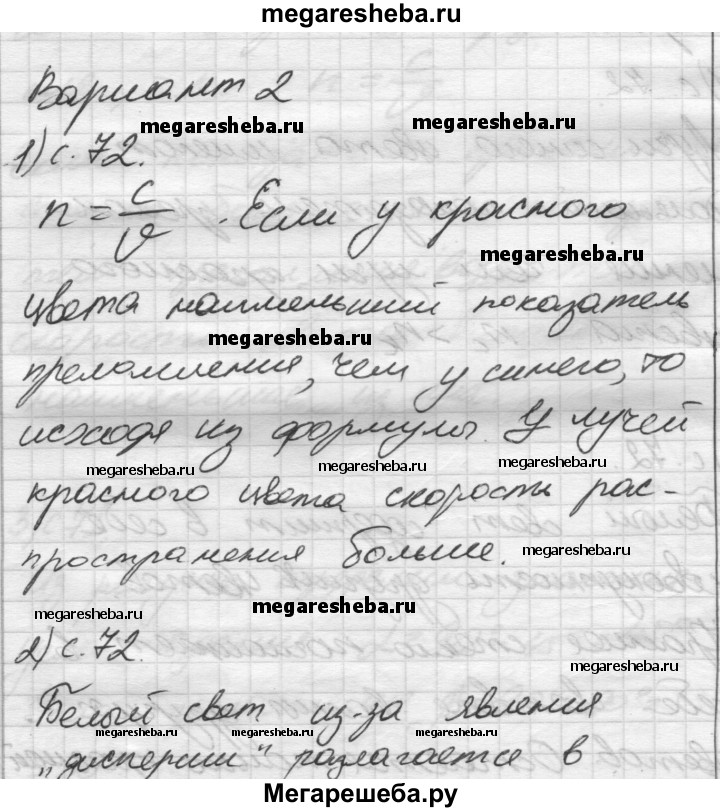 megaresheba.ru
Вариант 2
megaresheba.ru megaresheba.ru
1) с. 72.
n = c/v. Если у красного
megaresheba.ru
цвета наименьший показатель
megaresheba.ru
преломления, чем у синего, то
исходя из формулы. У лучей
megaresheba.ru megaresheba.ru megaresheba.ru
красного цвета скорость рас-
пространения больше.
megaresheba.ru
megaresheba.ru megaresheba.ru
2) с. 72.
megaresheba.ru
Белый свет из-за явления
megaresheba.ru megaresheba.ru megaresheba.ru
"дисперсии" разлагается в
Мегарешеба.ру